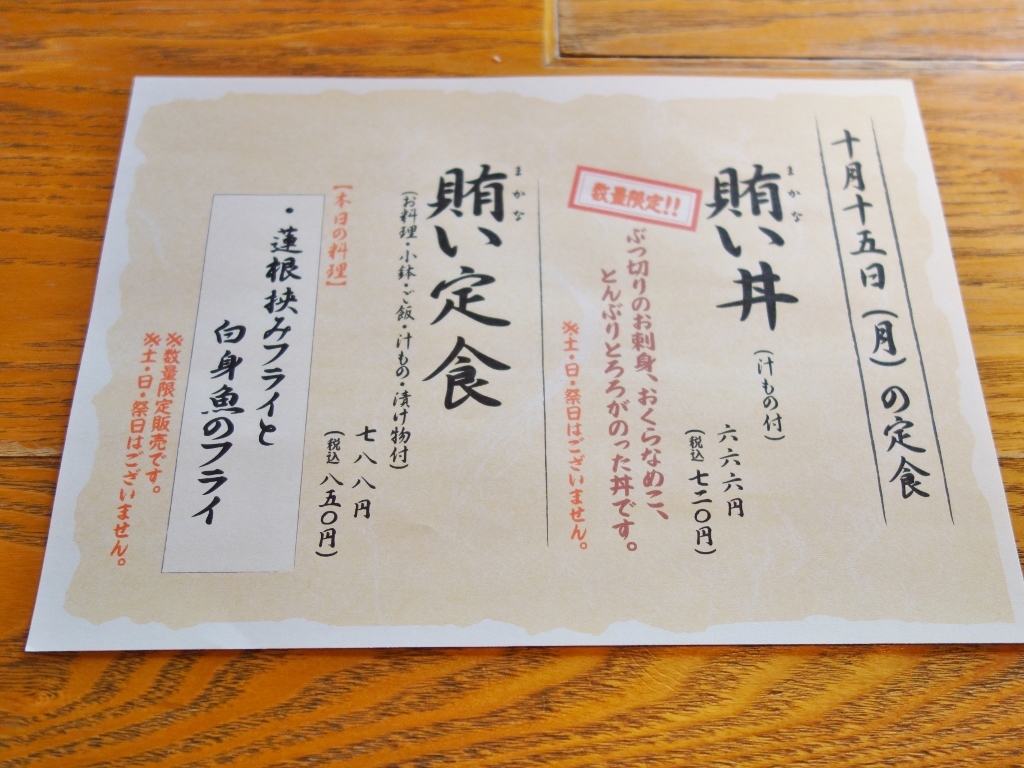 十月十五日（月）の定食
まかな
賄い丼
（汁もの付）
六六六円
（税込 七二〇円）
数量限定!!
ぶつ切りのお刺身、おくらなめこ、
とんぶりとろろがのった丼です。
※土・日・祭日はございません。
まかな
賄い定食
（お料理・小鉢・ご飯・汁もの・漬け物付）
七八八円
（税込 八五〇円）
【本日の料理】
・蓮根挟みフライと
白身魚のフライ
※数量限定販売です。
※土・日・祭日はございません。